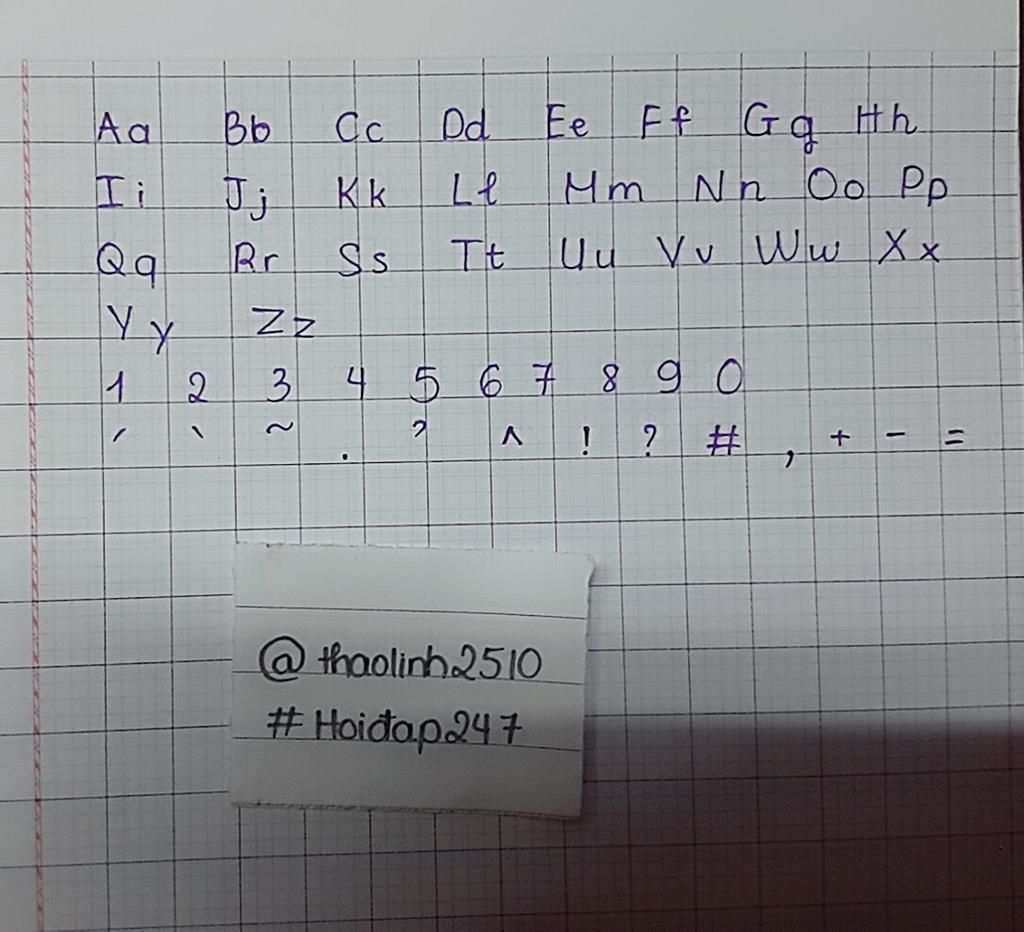 Aa Bb Cc Dd Ee Ff Gg Hh
Ii Jj Kk Ll Mm Nn Oo Pp
Qq Rr Ss Tt Uu Vv Ww Xx
Yy Zz
1 2 3 4 5 6 7 8 9 0
́ ̀ ~ . ̉ ^ ! ? # , + - =
@thaolinh2510
#Hoiđap247